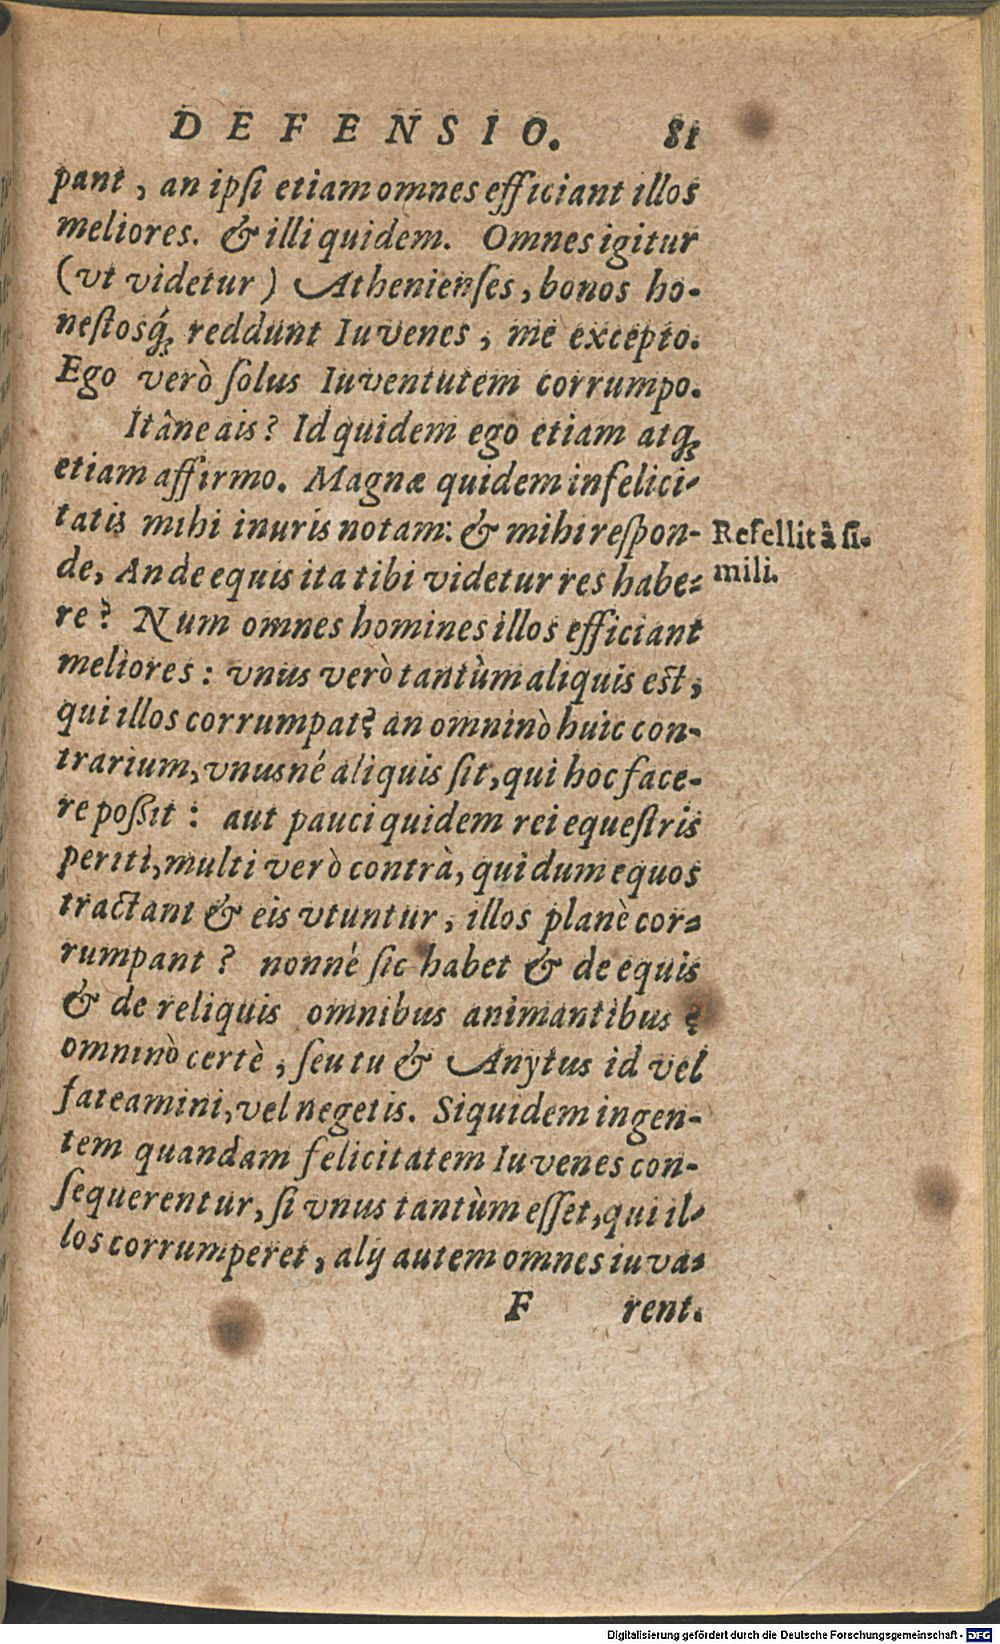 DEFENSIO. 81
pant, an ipſi etiam omnes efficiant illos
meliores. & illi quidem. Omnes igitur
(vt videtur) Athenienſes, bonos ho-
neſtosq́; reddunt Iuvenes, me excepto.
Ego verò ſolus Iuventutem corrumpo.
Itâne ais? Id quidem ego etiam atq;
etiam affirmo. Magnæ quidem infelici-
tatis mihi inuris notam: & mihi reſpon-
Refellit â ſi-
mili.
de, An de equis ita tibi videtur res habe-
re? Num omnes homines illos efficiant
meliores: vnus verò tantùm aliquis eſt,
qui illos corrumpat? an omninò huic con-
trarium, vnusné aliquis ſit, qui hoc face-
re poßit: aut pauci quidem rei equeſtris
periti, multi verò contrà, qui dum equos
tractant & eis vtuntur, illos planè cor-
rumpant? nonné ſic habet & de equis
& de reliquis omnibus animantibus?
omninò certè, ſeu tu & Anytus id vel
fateamini, vel negetis. Siquidem ingen-
tem quandam felicitatem Iuvenes con-
ſequerentur, ſi vnus tantùm eſſet, qui il-
los corrumperet, alij autem omnes iuva-
F rent.
Digitalisierung gefördert durch die Deutsche Forschungsgemeinschaft - DFG